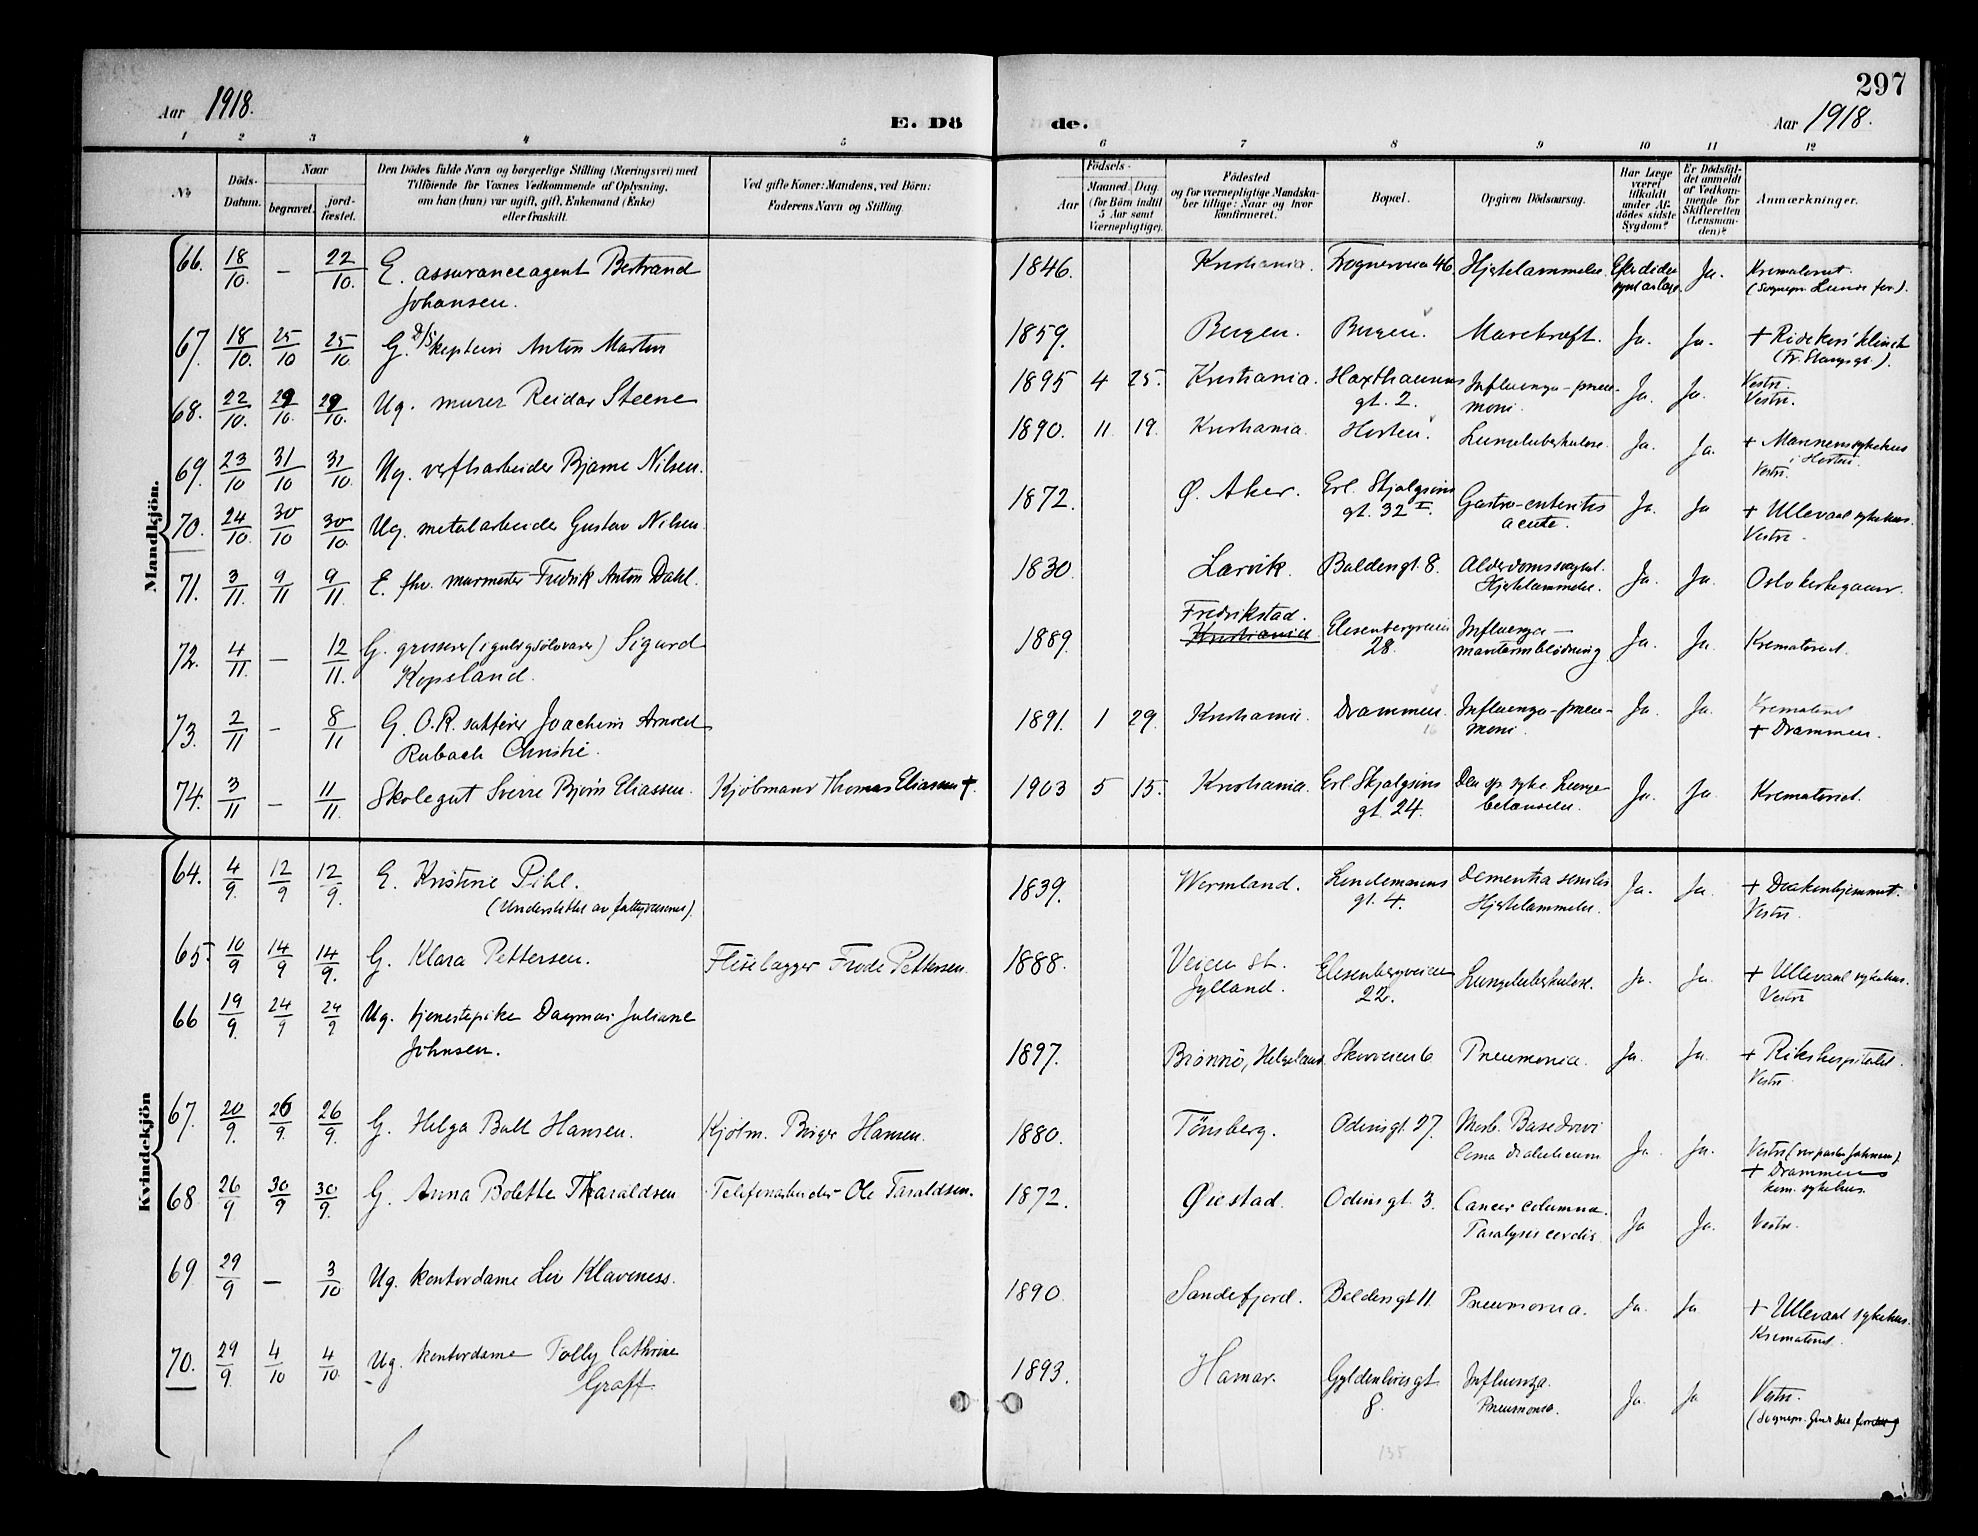 297
Aar 1918.
E. Dö de.
Aar 1918.
1 2 3 4 5 6 7 8 9 10 11 12
No.
Döds-Datum.
Naar
begravet.
jord-fæstet.
Den Dödes fulde Navn og borgerlige Stilling (Næringsvei) med
Tilföiende for Voxnes Vedkommende af Oplysning,
om han (hun) var ugift, gift, Enkemand (Enke)
eller fraskilt.
Ved gifte Koner: Mandens, ved Börn:
Faderens Navn og Stilling.
Födsels-
Aar
Maaned. Dag.
(for Börn indtil
5 Aar samt
Værnepligtige).
Födested
og for værnepligtige Mandska-
ber tillige: Naar og hvor
konfirmeret.
Bopæl.
Opgiven Dödsaarsag.
Har Læge
været
tilkaldt
under Af-
dödes sidste
Sygdom?
Er Dödsfal-
det anmeldt
af Vedkom-
mende for
Skifteretten
(Lensman-
den)?
Anmærkninger.
Mandkjön.
66. 18/10. — 22/10. E. assuranceagent Bertrand
Johansen.
1846. Kristiania. Frognerveien 46 Hjertelammelse. Ja. Krematoriet.
67. 18/10. 25/10 25/10 G. Anton Martin
1859. Bergen. Bergen. Marvkræft. Ja. Ja.
68. 22/10. 29/10. 29/10. Ug. murer Reidar Steene
1895 4 25. Kristiania. Haxthausens
gt. 2. Influenza-pneu-
moni. Ja. Ja. Vestre.
Vestre.
69. 23/10 31/10 31/10. Ug. verftsarbeider Bjarne Nilsen.
1890. 11. 19. Kristiania. Horten. Lungetuberkulose. Ja. Ja. + Marinens sykehus
i Horten.
Vestre.
70. 24/10. 30/10 30/10. Ug. metalarbeider Gustav Nilsen.
1872. Ø. Aker. Erl. Skjalgsøns
gt. 32 II. Gastro-enteritis
acuta. Ja. Ja + Ullevaal sykehus.
Vestre.
71. 3/11. 9/11 9/11. E. fhv. murmester Fredrik Anton Dahl.
1830. Larvik. Baldersgt. 8. Alderdomssvaghet.
Hjertelammelse. Ja. Ja. Oslo kirkegaard.
72. 4/11. — 12/11. G. grosserer (i guld og sølvvarer) Sigurd
Kopsland.
1889. Fredrikstad.
Kristiania Elesenbergveien
28. Influenza —
Ja. Ja. Krematoriet.
73. 2/11 — 8/11 G. O.R. sakfører Joachim Arnold
Rubach Christie.
1891. 1 29. Kristiania. Drammen. Influenza-pneu-
moni. Ja. Ja. Krematoriet
+ Drammen.
74. 3/11 — 11/11 Skolegut Sverre Bjørn Eliassen. Kjøbmand Thomas Eliassen +.
1903 5 15. Kristiania. Erl. Skjalgsøns
gt. 24. Den sp. syke Lunge-
betændelse. Ja. Ja. Krematoriet.
Kvindekjön
64. 4/9. 12/9 12/9. E. Kristine Pihl.
(Understøttet av fattigvæsenet).
1839. Wermland. Lindemanns
gt. 4. Dementia senilis
Hjertelammelse. Ja. Ja. + Diakonhjemmet.
Vestre.
65. 10/9 14/9 14/9. G. Klara Pettersen. Fliselægger Frode Pettersen.
1888. Veien St.
Jylland. Elesenbergveien
22. Lungetuberkulose. Ja. Ja. + Ullevaal sykehus.
Vestre
66 19/9. 24/9 24/9 Ug. tjenestepike Dagmar Juliane
Johnsen.
1897. Brønnø, Helgeland. Skovveien 6 Pneumonia. Ja. Ja. + Rikshospitalet.
Vestre.
67. 20/9. 26/9. 26/9. G. Helga Bull Hansen. Kjøbm. Birger Hansen.
1880. Tönsberg. Odinsgt. 27. Morb. Basedowi
Coma diabeticum Ja. Ja. Vestre
+ Drammens
kom. sykehus.
68. 26/9 30/9 30/9. G. Anna Bolette Tharaldsen Telefonarbeider Ole Taraldsen.
1872. Øiestad. Odinsgt. 3. Cancer columna.
Paralysis cordis. Ja Ja. Vestre.
69 29/9 — 3/10 Ug. kontordame Liv Klaveness.
1890 Sandefjord. Baldersgt 11. Pneumonia. Ja. Ja + Ullevaal sykehus.
Krematoriet.
70. 29/9. 4/10 4/10. Ug. kontordame Tolly Cathrine
Graff.
1893. Hamar. Gyldenløvesgt
8. Influenza.
Pneumonia. Ja. Ja Vestre.
135